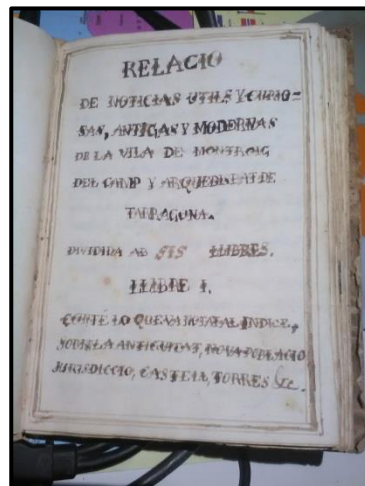 RELACIO
DE NOTICIAS UTILS Y CURIO=
SAS, ANTIGAS Y MODERNAS
DE LA VILA DE MONTROIG
DEL CAMP Y ARQUEBISBAT DE
TARRAGONA.
DIVIDIDA AB SIS LLIBRES.
LLIBRE I.
CONTÉ LO QUE VA NOTAT AL INDICE,
SOBRE LA ANTIGUITAT, NOVA POBLACIO
JURISDICCIO, CASTELL, TORRES &c.